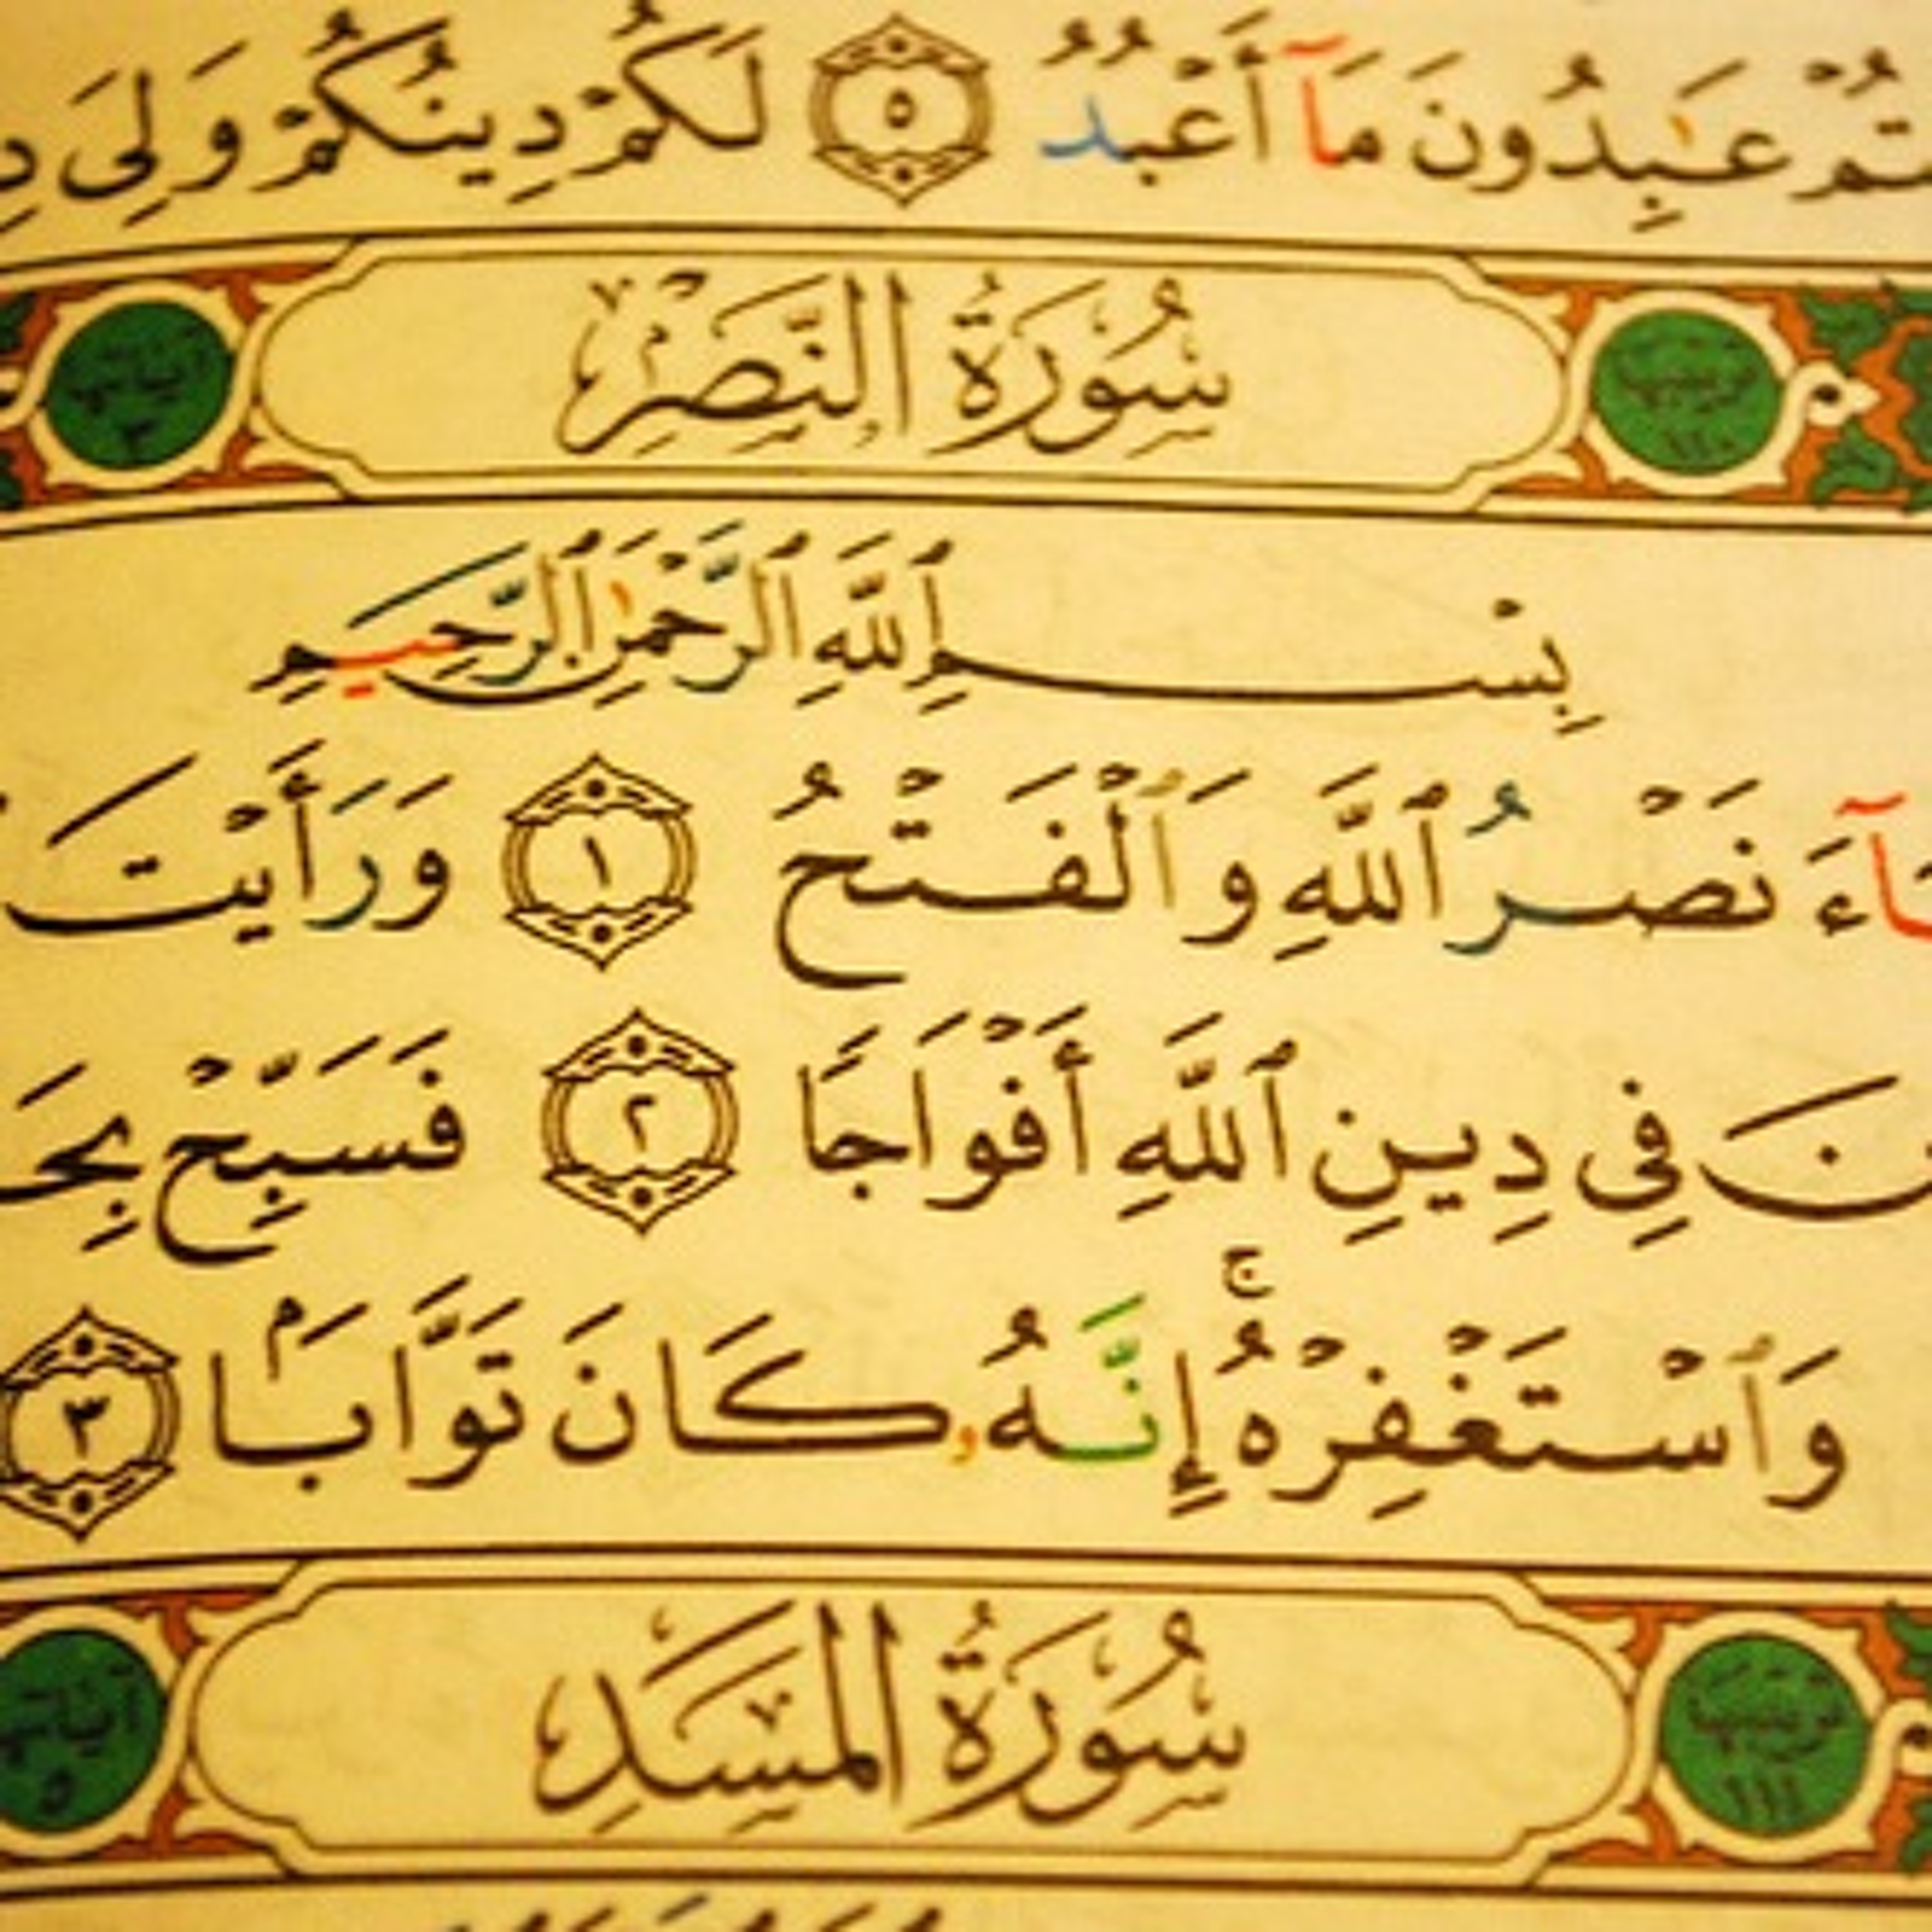 عَٰبِدُونَ مَآ أَعْبُدُ ٥ لَكُمْ دِينُكُمْ وَلِىَ
سُورَةُ النَّصْرِ
بِسْمِ ٱللَّهِ ٱلرَّحْمَٰنِ ٱلرَّحِيمِ
نَصْرُ ٱللَّهِ وَٱلْفَتْحُ ١ وَرَأَيْتَ
فِى دِينِ ٱللَّهِ أَفْوَاجًا ٢ فَسَبِّحْ
وَٱسْتَغْفِرْهُ ۚ إِنَّهُۥ كَانَ تَوَّابَۢا ٣
سُورَةُ المَسَدِ
١١١
٥